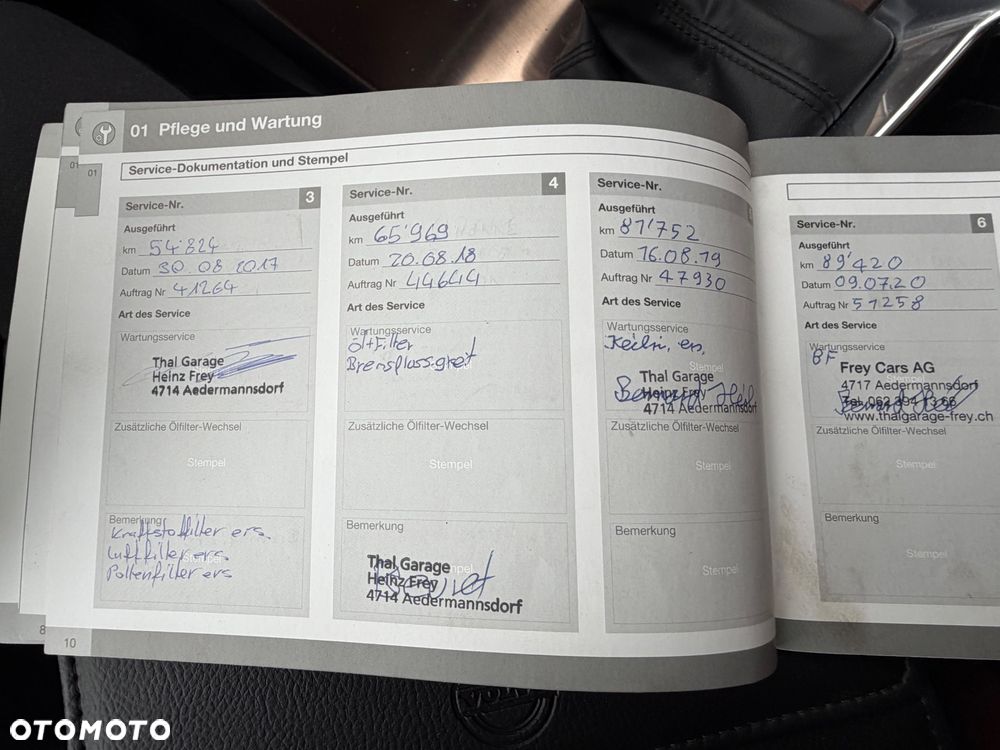 01 Pflege und Wartung
01
01
Service-Dokumentation und Stempel
Service-Nr. 3
Ausgeführt
km 54'824
Datum 30.08 2017
Auftrag Nr 41264
Art des Service
Wartungsservice
Thal Garage
Heinz Frey
4714 Aedermannsdorf
Zusätzliche Ölfilter-Wechsel
Stempel
Bemerkung
Kraftstoffilter ers.
Luftfilter ers.
Pollenfilter ers
Stempel
Service-Nr. 4
Ausgeführt
km 65'969
Datum 20.08.18
Auftrag Nr 44644
Art des Service
Wartungsservice
Öl+Filter
Bremsflüssigkeit
Zusätzliche Ölfilter-Wechsel
Stempel
Bemerkung
Thal Garage
Heinz Frey
4714 Aedermannsdorf
Service-Nr.
Ausgeführt
km 81'752
Datum 16.08.19
Auftrag Nr 47930
Art des Service
Wartungsservice
Keilri, ers,
Stempel
Thal Garage
Heinz Frey
4714 Aedermannsdorf
Zusätzliche Ölfilter-Wechsel
Stempel
Bemerkung
Stempel
Service-Nr. 6
Ausgeführt
km 89'420
Datum 09.07.20
Auftrag Nr 51258
Art des Service
Wartungsservice
BF
Frey Cars AG
4717 Aedermannsdorf
Tel. 062
www.thalgarage-frey.ch
Zusätzliche Ölfilter-Wechsel
Stempel
Bemerkung
Stempel
8
10
OTOMOTO